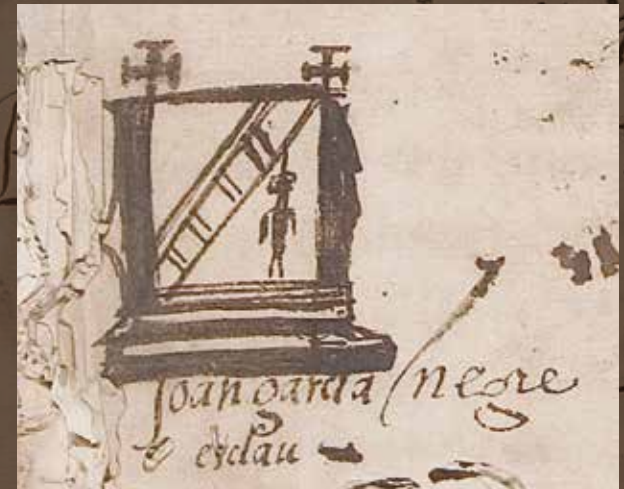 Joan garcia negre
e esclau